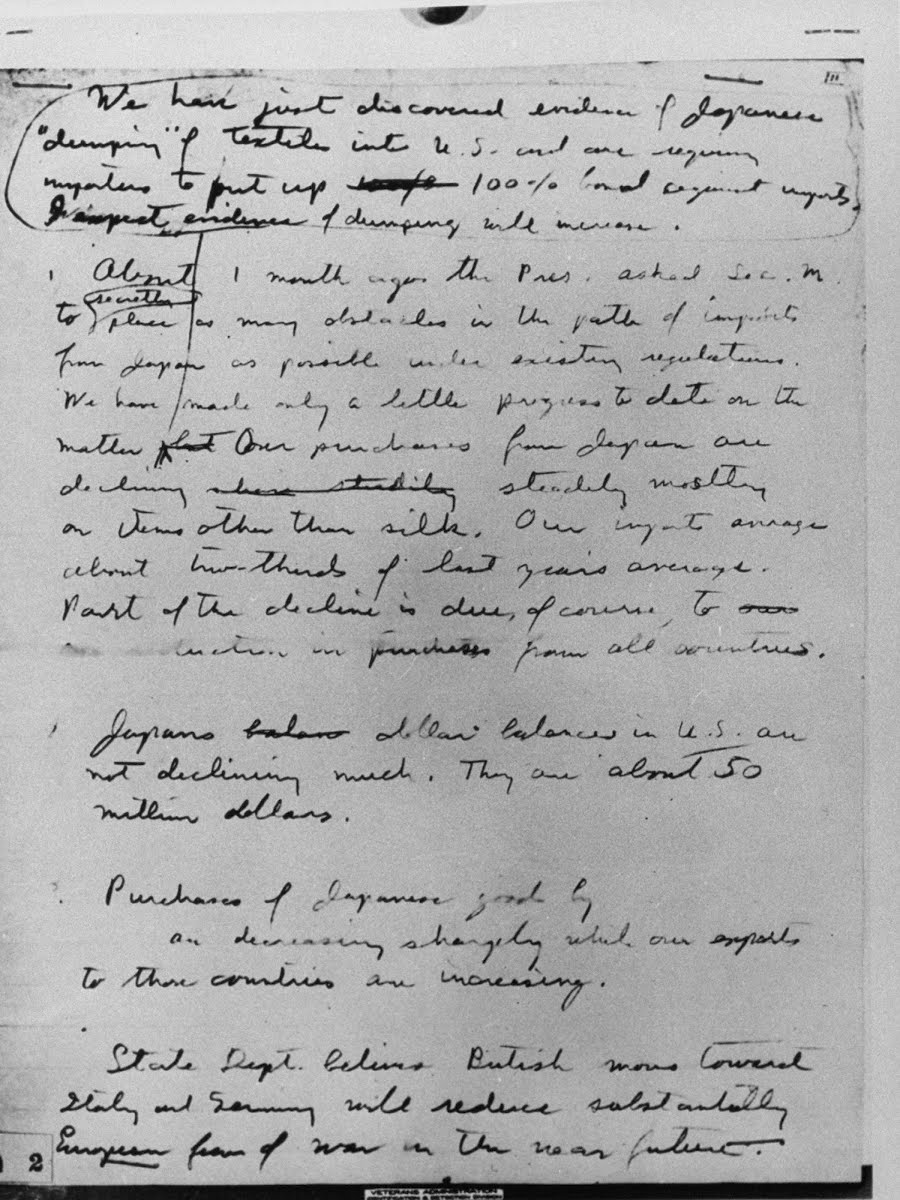 We have just discovered evidence of Japanese
"dumping" of textiles into U.S. and are requiring
importers to put up 100% bond against imports.
evidence of dumping will increase.
About 1 month ago the Pres. asked Sec. M.
secretly
to place as many obstacles in the path of imports
from Japan as possible under existing regulations.
We have made only a little progress to date on the
matter Our purchases from Japan are
declining steadily mostly
on items other than silk. Our imports average
about two-thirds of last years average.
Part of the decline is due, of course, to
in purchases from all countries.
Japans dollar balances in U.S. are
not declining much. They are about 50
million dollars.
Purchases of Japanese goods by
are decreasing sharply while our exports
to those countries are increasing.
State Dept. believes British moves toward
Italy and Germany will reduce substantially
European fear of war in the near future.
2
VETERANS ADMINISTRATION